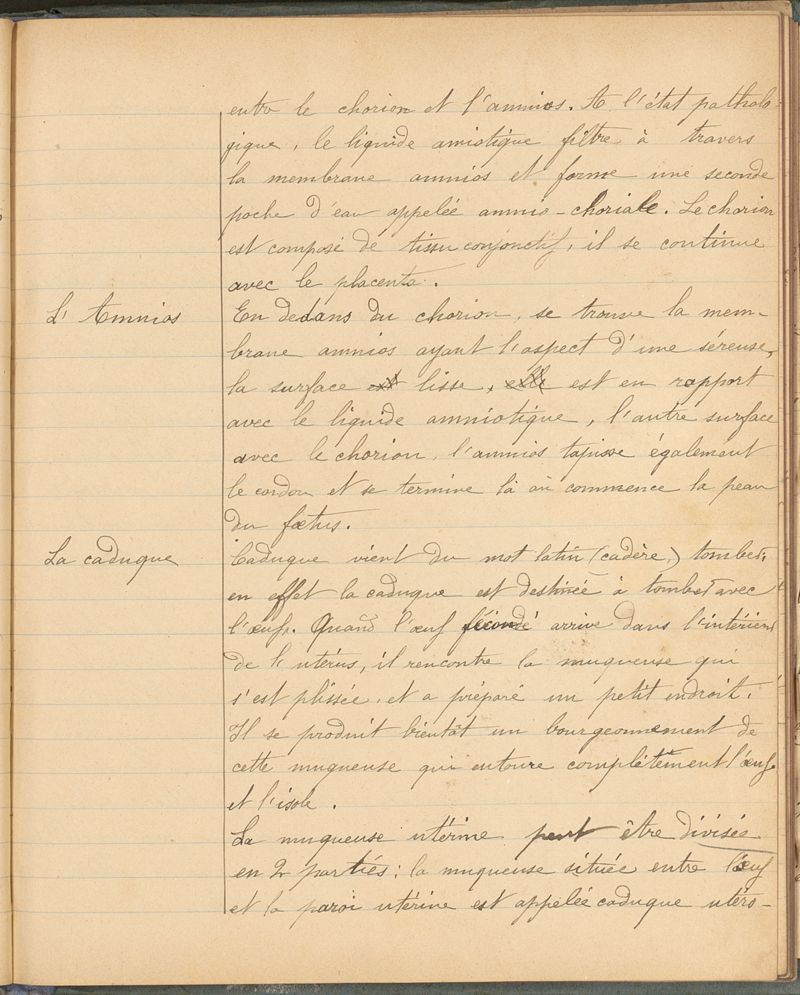 entre le chorion et l'amnios. A l'état patholo-
gique, le liquide amiotique filtre à travers
la membrane amnios et forme une seconde
poche d'eau appelée amnio-choriale. Le chorion
est composé de tissu conjonctif, il se continue
avec le placenta.
L'Amnios
En dedans du chorion, se trouve la mem-
brane amnios ayant l'aspect d'une séreuse,
la surface est lisse, elle est en rapport
avec le liquide amniotique, l'autre surface
avec le chorion, l'amnios tapisse également
le cordon et se termine là où commence la peau
du fœtus.
La caduque
Caduque vient du mot latin (cadère,) tomber,
en effet la caduque est destinée à tomber avec
l'œuf. Quand l'œuf fécondé arrive dans l'intérieur
de l'utérus, il rencontre la muqueuse qui
s'est plissée, et a préparé un petit endroit.
Il se produit bientôt un bourgeonnement de
cette muqueuse qui entoure complètement l'œuf
et l'isole.
La muqueuse utérine peut être divisée
en 2 parties: la muqueuse située entre l'œuf
et la paroi utérine est appelée caduque utéro-